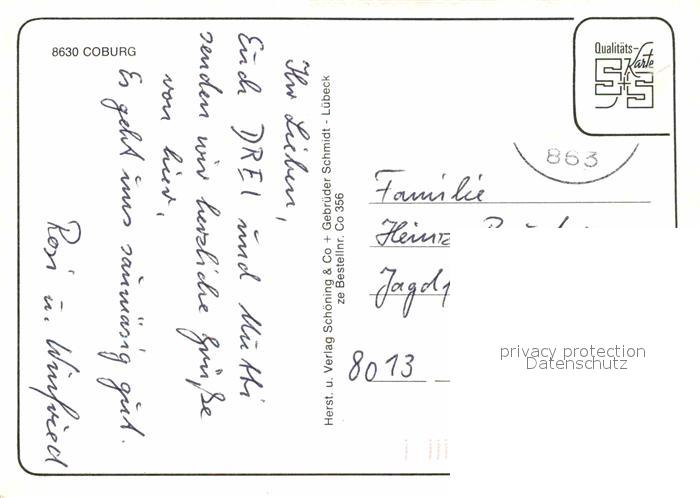 8630 COBURG
Ihr Lieben,
Euch DREI und Mutti
senden wir herzliche Grüße
von hier.
Es geht uns saumäßig gut.
Rosi u. Winfried
Herst. u. Verlag Schöning & Co + Gebrüder Schmidt - Lübeck
ze Bestellnr. Co 356
Qualitäts-
Karte
863
Familie
Heinz
8013
privacy protection
Datenschutz